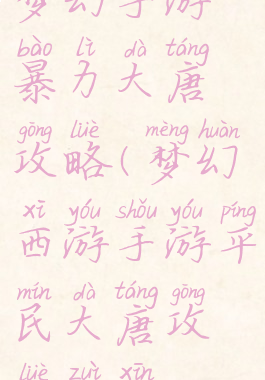 梦幻手游
bào lì dà táng
暴力大唐
gōng lüè mèng huàn
攻略(梦幻
xī yóu shǒu yóu píng
西游手游平
mín dà táng gōng
民大唐攻
lüè zuì xīn